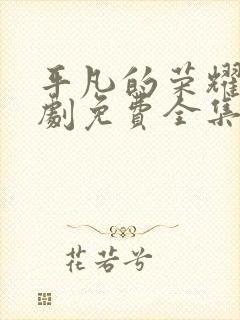 平凡的荣耀
劇免費全集
花若兮